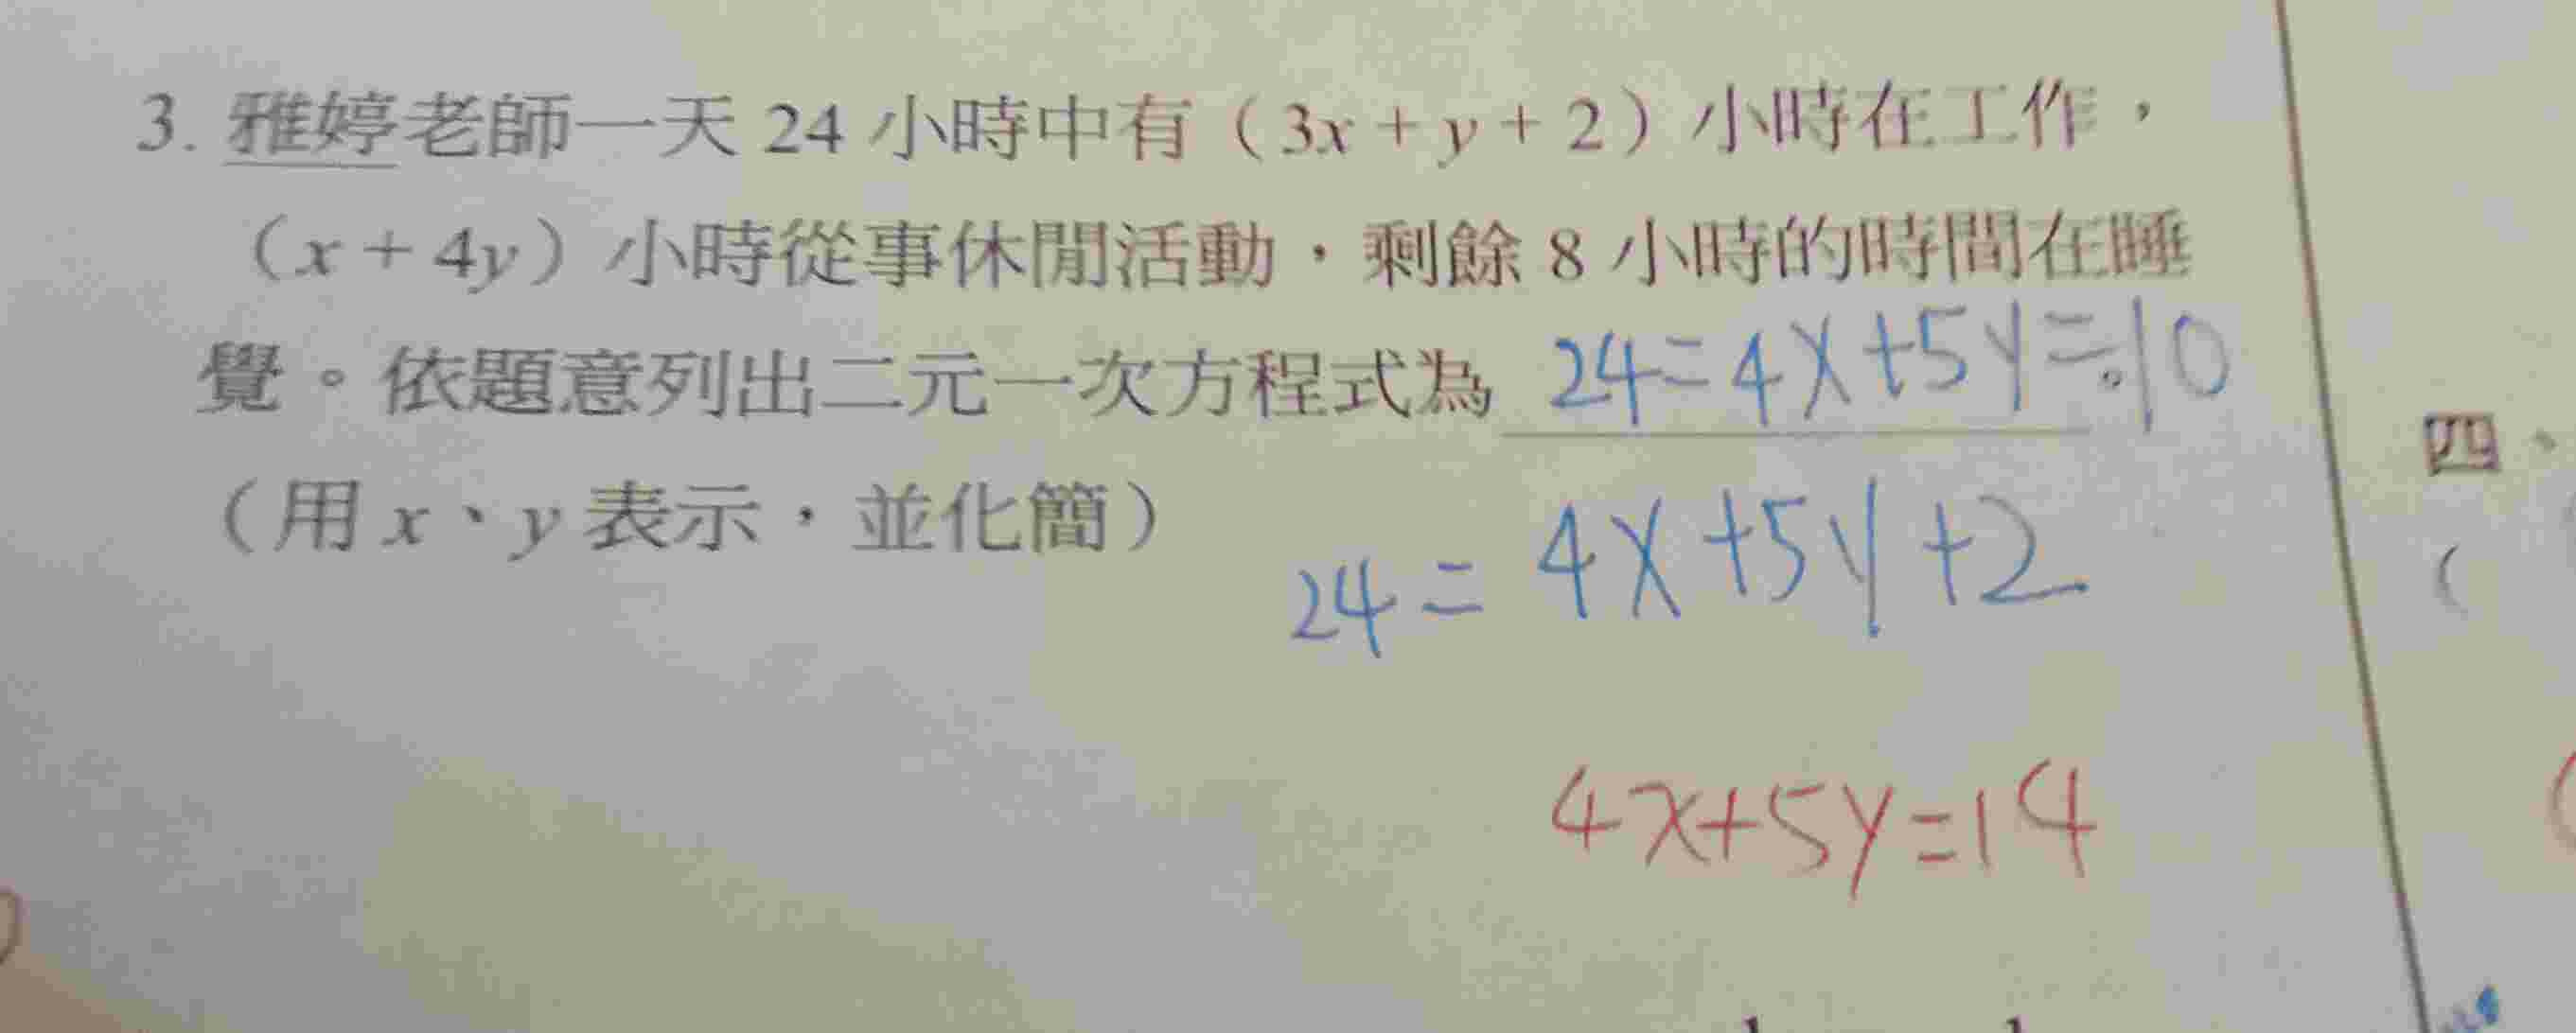 3. 雅婷老師一天 24 小時中有（3x + y + 2）小時在工作，
（x + 4y）小時從事休閒活動，剩餘 8 小時的時間在睡
覺。依題意列出二元一次方程式為 24=4x+5y=10。
（用 x、y 表示，並化簡）
24 = 4x+5y+2
4x+5y=14
四、
(